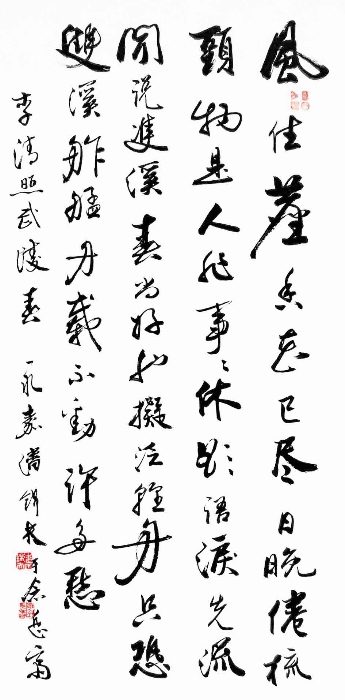 風住塵香花已盡日晚倦梳
頭物是人非事〻休欲語淚先流
聞說雙溪春尚好也擬泛輕舟只恐
雙溪舴艋舟載不動許多愁
李清照武陵春